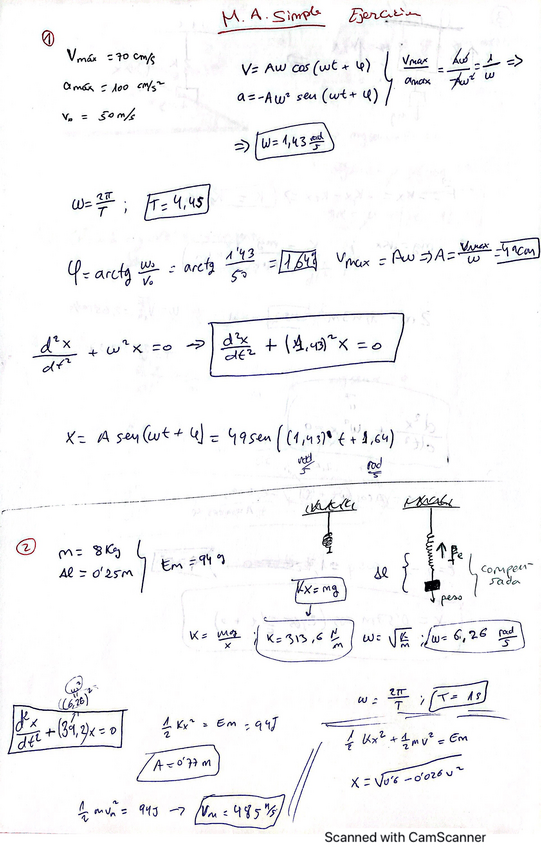 M.A. Simple Ejercicios
①
Vmáx = 70 cm/s
amáx = 100 cm/s²
v₀ = 50 m/s
V = Aω cos(ωt + φ)
a = -Aω² sen(ωt + φ)
Vmax/amax = Aω/Aω² = 1/ω ⇒
⇒ ω = 1,43 rad/s
ω = 2π/T ; T = 4,4 s
φ = arctg ω₀/v₀ = arctg 1'43/50 = 1,64 Vmax = Aω ⇒ A = Vmax/ω = 49 cm
d²x/dt² + ω²x = 0 → d²x/dt² + (1,43)²x = 0
X = A sen(ωt + φ) = 49 sen((1,43) t + 1,64)
rad/s rad/s
②
m = 8 Kg
Δl = 0'25 m
Em = 94 J
Kx = mg
Δl
Fe
peso
compensada
K = mg/x ; K = 313,6 N/m ω = √K/m ; ω = 6,26 rad/s
ω = 2π/T ; T = 1 s
ω²
(6,26)²
d²x/dt² + (39,2)x = 0
½ Kx² = Em = 94 J
A = 0'77 m
½ Kx² + ½ mv² = Em
X = √0'6 - 0'026v²
½ mvₘ² = 94 J → Vₘ = 4'85 m/s
Scanned with CamScanner